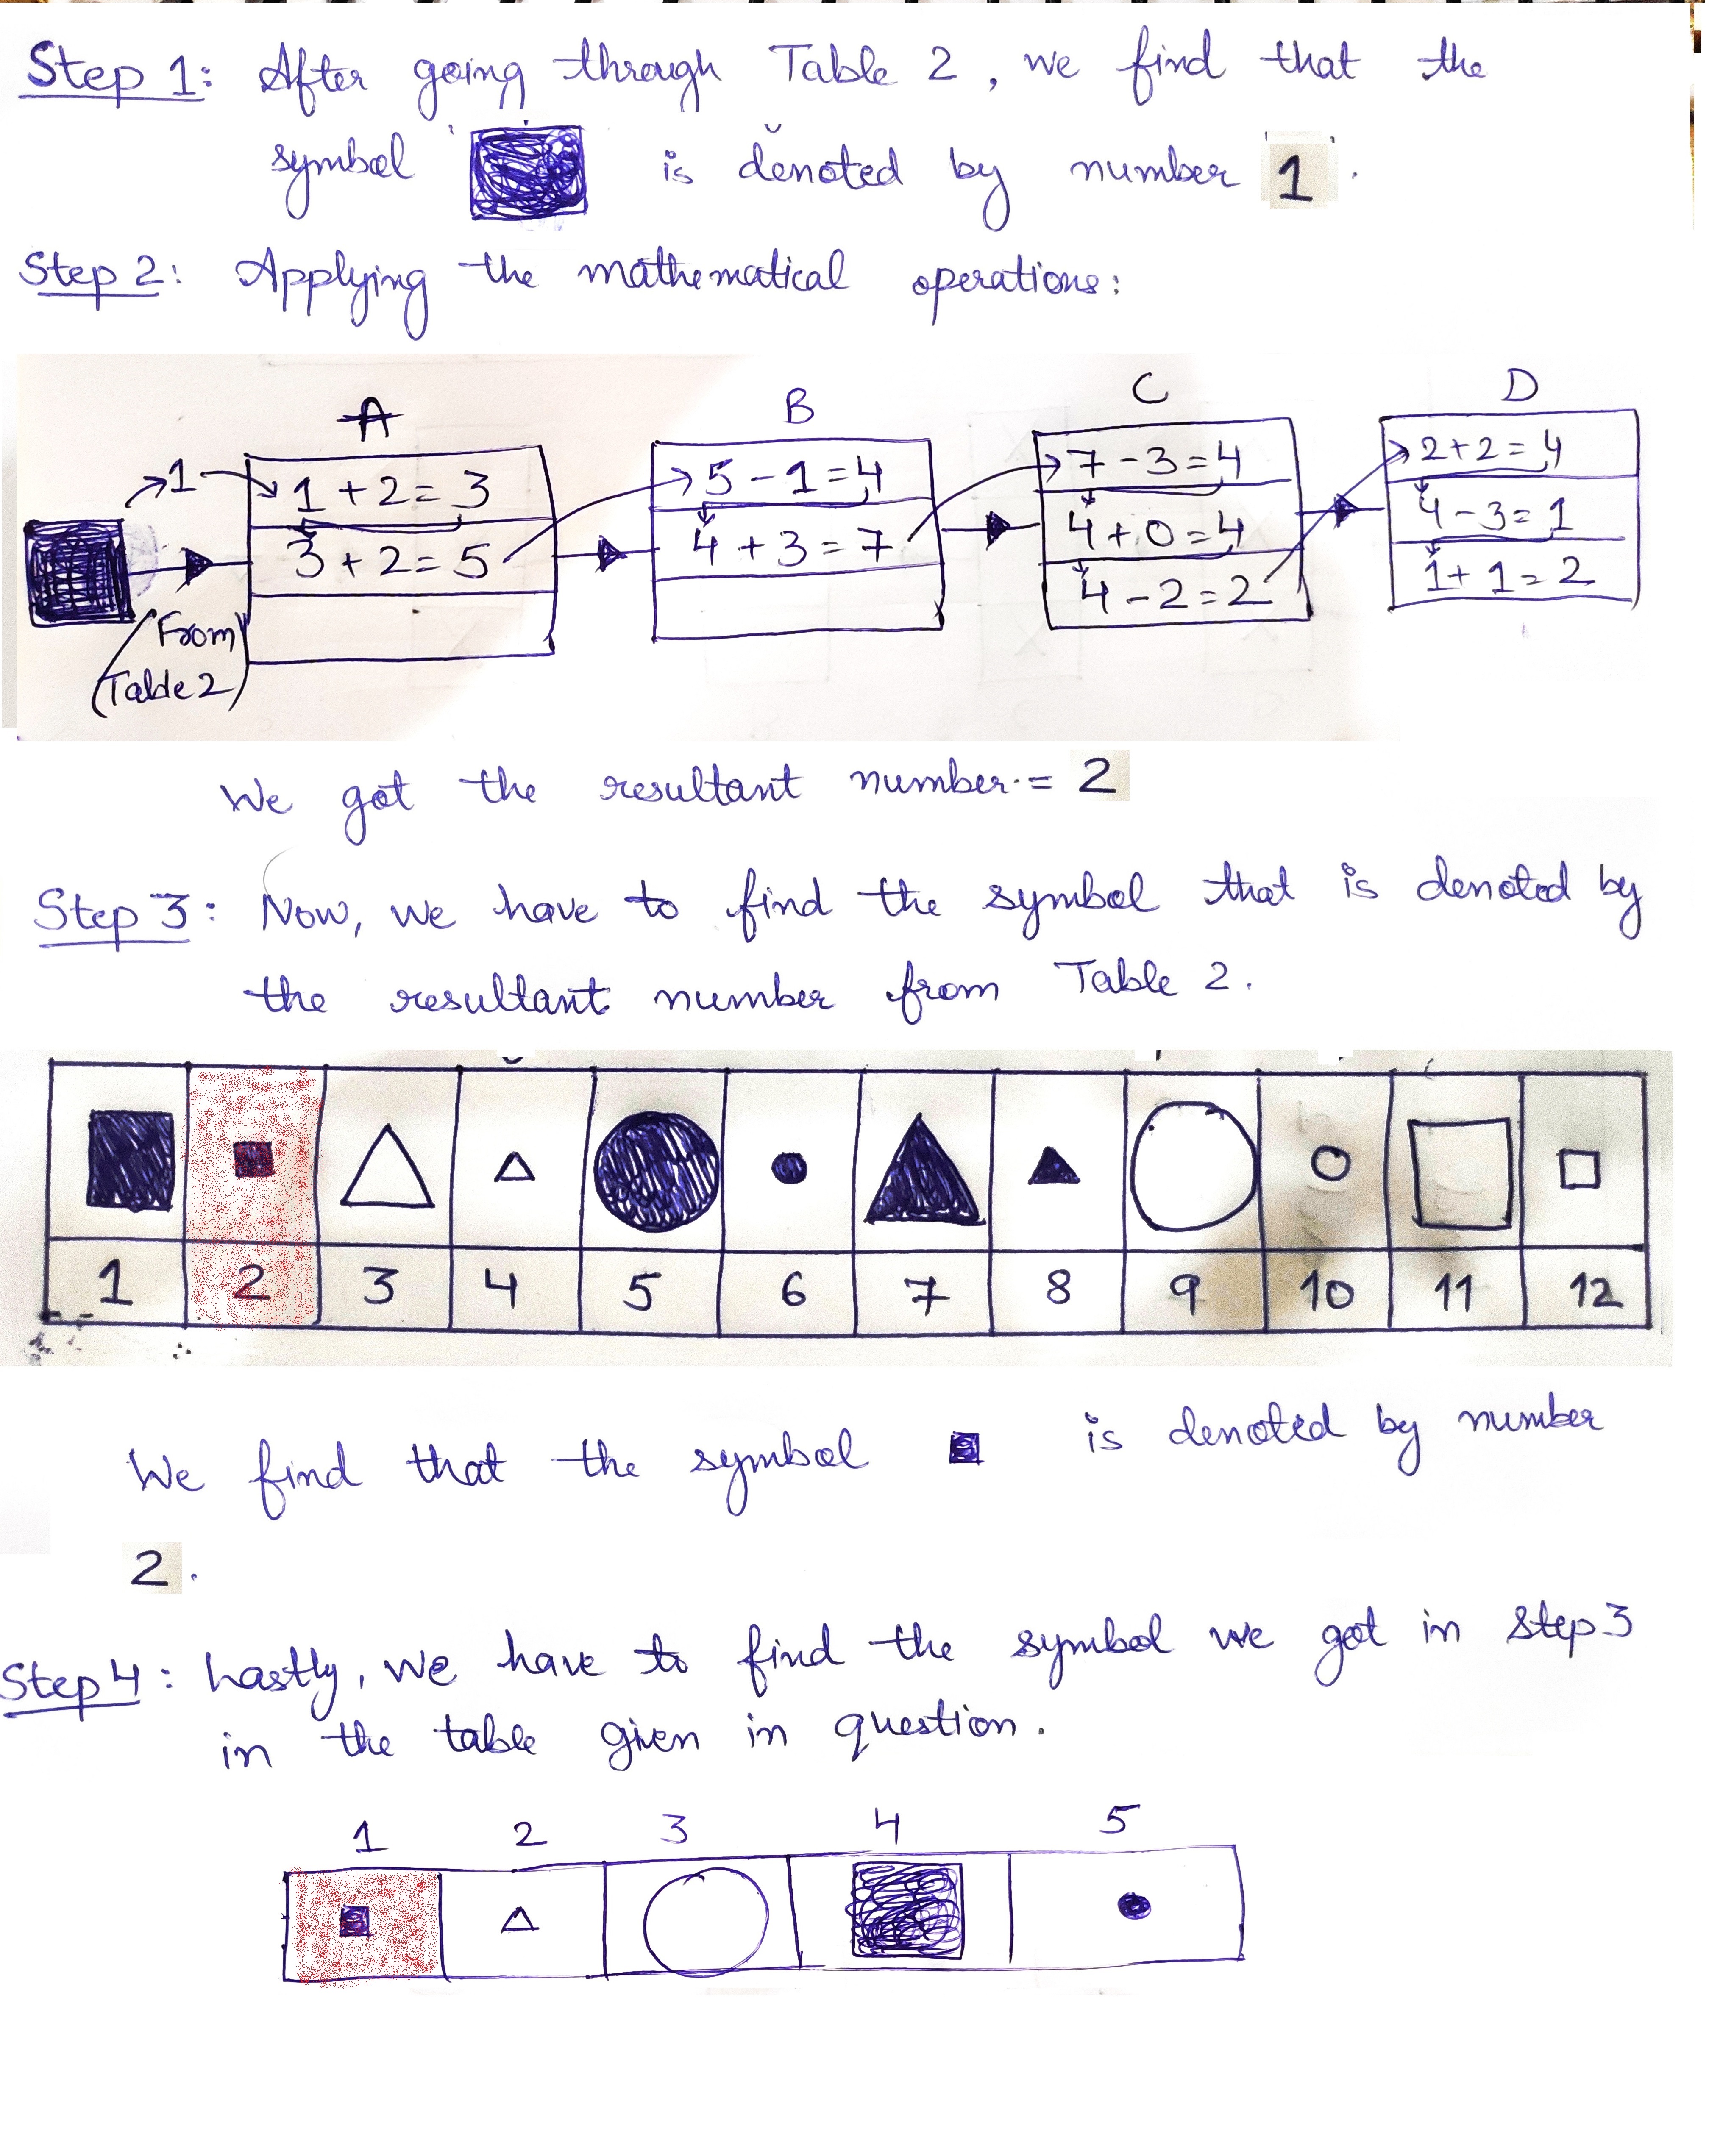 Step 1: After going through Table 2, we find that the
symbol ' ' is denoted by number '1'.
Step 2: Applying the mathematical operations:
A B C D
1 1+2=3 5-1=4 7-3=4 2+2=4
3+2=5 4+3=7 4+0=4 4-3=1
4-2=2 1+1=2
(From
Table 2)
We got the resultant number = 2
Step 3: Now, we have to find the symbol that is denoted by
the resultant number from Table 2.
1 2 3 4 5 6 7 8 9 10 11 12
We find that the symbol is denoted by number
2.
Step 4: Lastly, we have to find the symbol we got in step 3
in the table given in question.
1 2 3 4 5